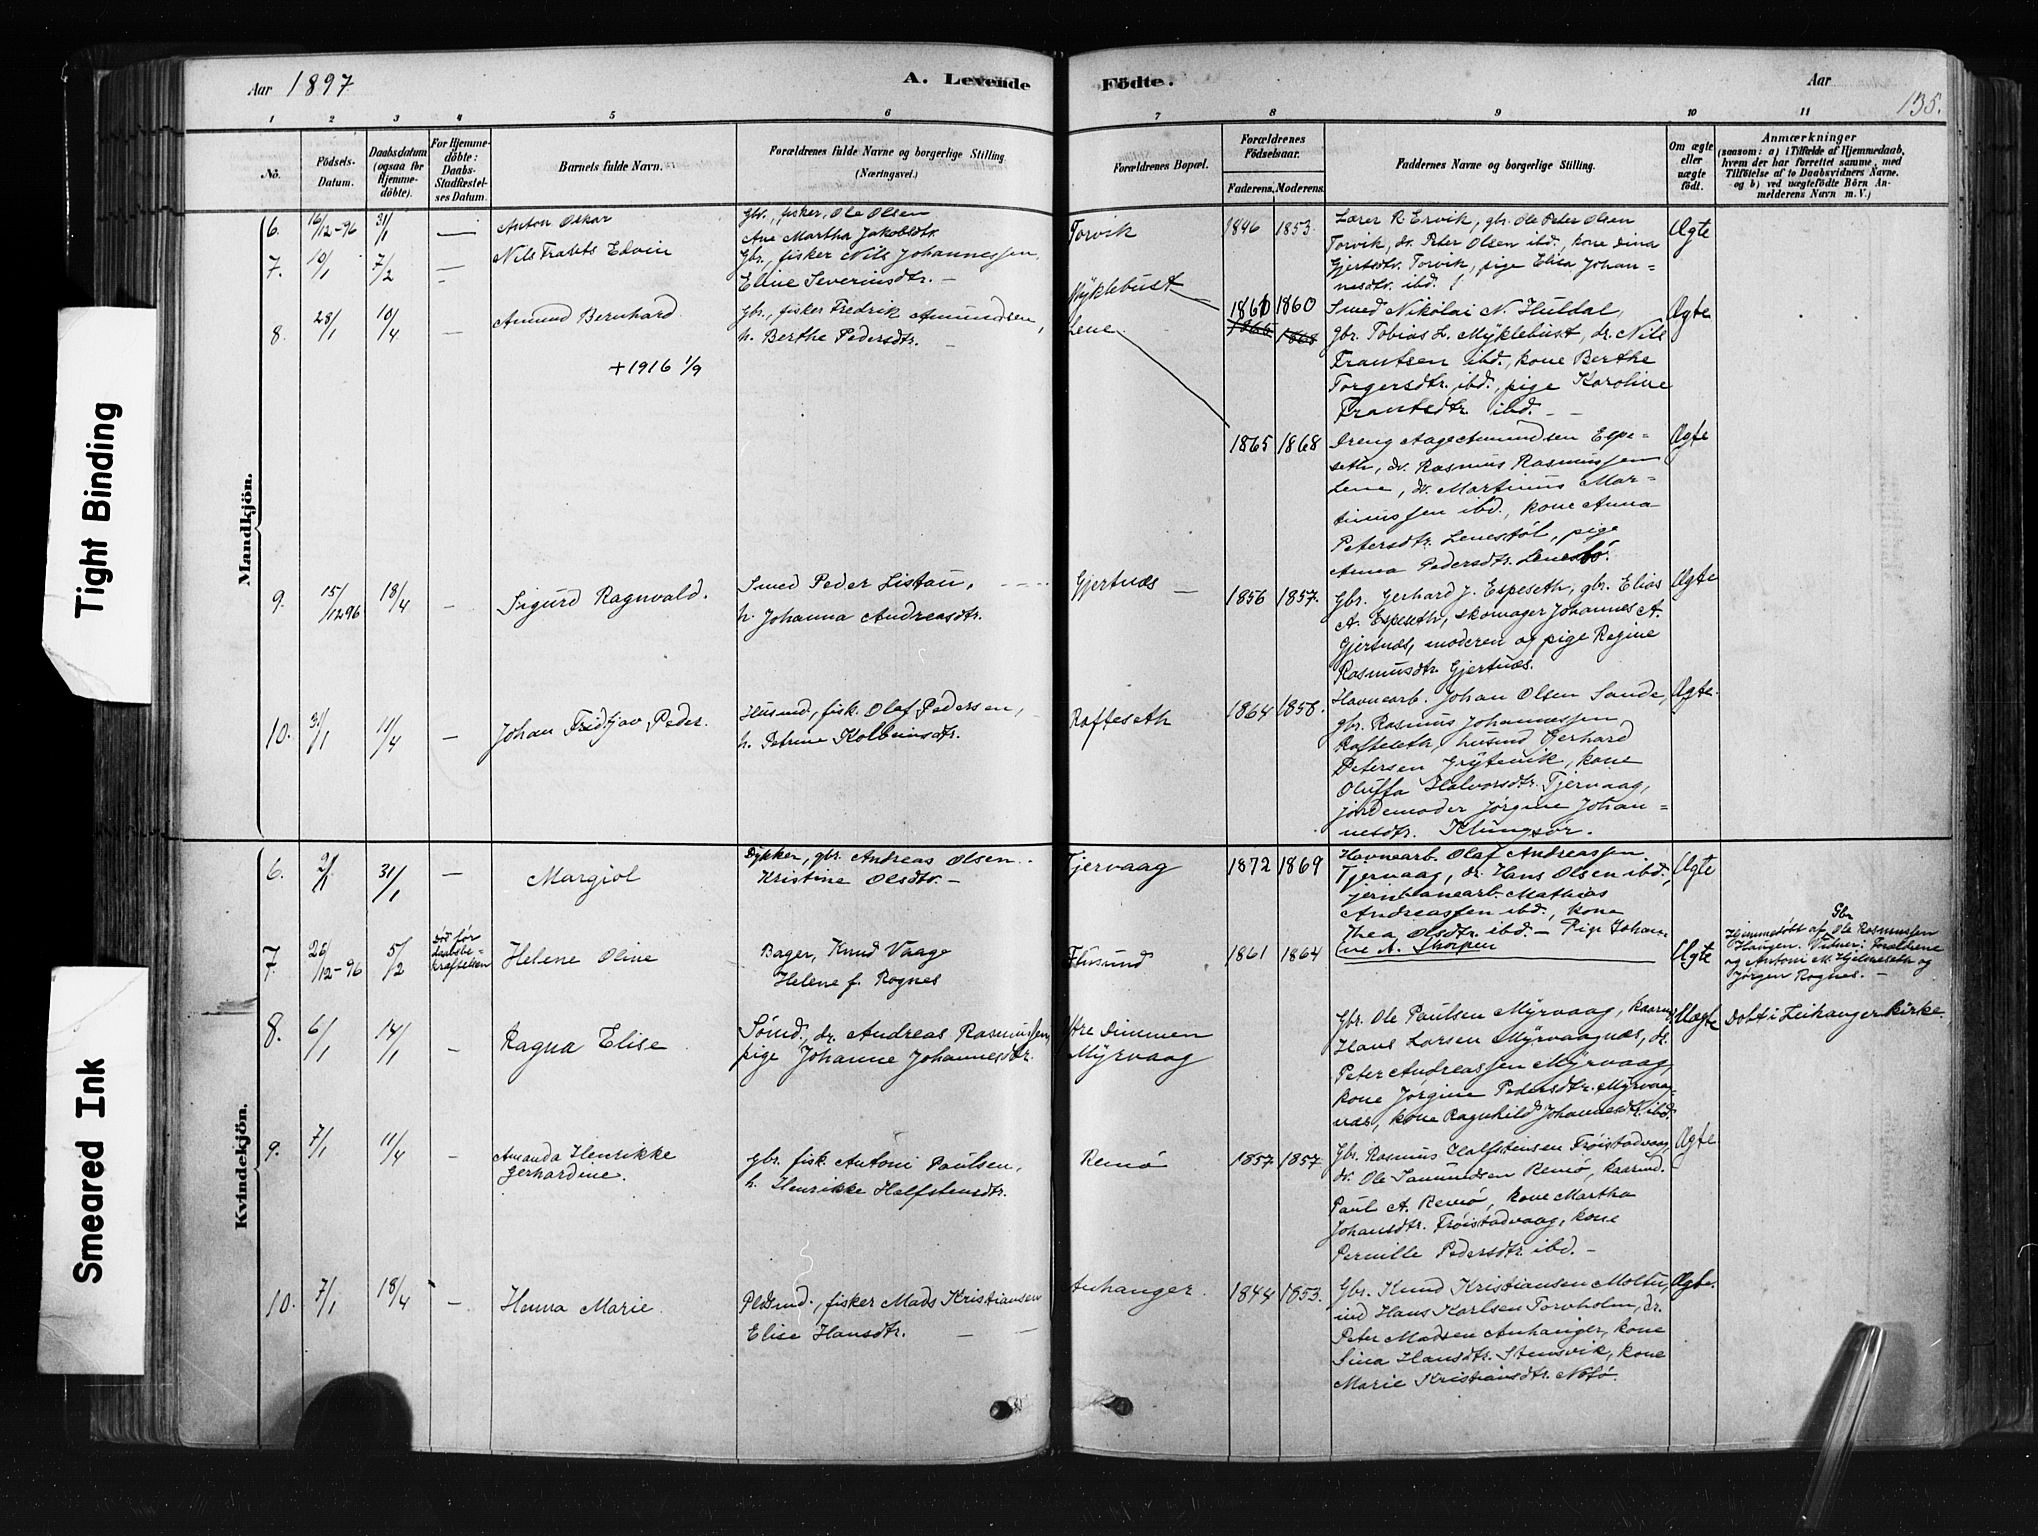 Aar 1897
A. Levende
Födte.
Aar
135.
1 2 3 4 5 6 7 8 9 10 11
No.
Födsels-
Datum.
Daabsdatum
(ogsaa for
Hjemme-
döbte).
For Hjemme-
döbte:
Daabs-
Stadfæstel-
ses Datum.
Barnets fulde Navn.
Forældrenes fulde Navne og borgerlige Stilling.
(Næringsvei.)
Forældrenes Bopæl.
Forældrenes
Födselsaar.
Faderens. Moderens.
Faddernes Navne og borgerlige Stilling.
Om ægte
eller
uægte
födt.
Anmærkninger
(saasom: a) i Tilfælde af Hjemmedaab,
hvem der har forrettet samme, med
Tilföielse af to Daabsvidners Navne,
og b) ved uægtefödte Börn An-
melderens Navn m.V.)
Mandkjön.
6. 16/12-96 31/1 — Anton Oskar
Gbr., fisker, Ole Olsen
Ane Martha Jakobsdtr.
Torvik
1846 1853
Lærer R. Ervik, gbr. Ole Peter Olsen
Torvik, dr. Peter Olsen ibd., kone Dina
Gjertsdtr. Torvik, pige Elisa Johan-
nesdtr. ibd.
Ægte
7. 10/1 7/2 — Nils Edvin
Gbr., fisker Nils Johannessen,
Eline Severinsdtr. —
Myklebust —
1860 1860
Smed Nikolai N. Huldal,
gbr. Tobias L. Myklebust, dr. Nils
Frantsen ibd., kone Berthe
Torgersdtr. ibd., pige Karoline
Frantsdtr. ibd. —
Ægte
8. 28/1 10/4 — Amund Bernhard
+ 1916 1/9
Gbr., fisker Fredrik Amundsen,
h. Berthe Pedersdtr. —
Lene
1865 1868
1865 1868
Dreng Aage Amundsen Espe-
seth, dr. Rasmus Rasmussen
Lene, dr. Martinus Mar-
tinussen ibd., kone Anna
Petersdtr. Lenestöl, pige
Anna Pedersdtr. Lenestö.
Ægte
9. 15/1296 18/4 — Sigurd Ragnvald.
Smed Peder Listau,
h. Johanna Andreasdtr.
Gjertnæs —
1856 1857
Gbr. Gerhard J. Espeseth, gbr. Elias
A. Espeseth, skomager Johannes A.
Gjertnæs, moderen og pige Regine
Rasmusdtr. Gjertnæs.
Ægte
10. 31/1 11/4 — Johan Fridtjov Peder.
Husmd., fisk. Olaf Pedersen,
h. Petrine Kolbeinsdtr.
Rafteseth
1864 1858.
Havnearb. Johan Olsen Sande,
gbr. Rasmus Johannessen
Rafteseth, husmd. Gerhard
Petersen Grytevik, kone
Oluffa Halvorsdtr. Tjervaag,
jordemoder Jørgine Johan-
nesdtr. Klungsör.
Ægte.
Kvindekjön.
6. 2/1 31/1 — Margiol
Dykker, gbr. Andreas Olsen
Kristine Olsdtr. —
Tjervaag
1872 1869
Havnearb. Olaf Andreassen
Tjervaag, dr. Hans Olsen ibd.,
jernbanearb. Mathias
Andreassen ibd., kone
Thea Olsdtr. ibd. — Pige Johan-
Ægte
7. 26/12-96 5/2
Död før
daabsbe-
kræftelsen
Helene Oline
Bager, Knud Vaage
Helene f. Rognes
Husund
1861 1864
Ægte
Hjemmedöbt af Gbr Ole Rasmussen
Haugen. Vidner: Forældrene
og Antoni M. Hjelmeseth og
Jørgen Rognes. —
8. 6/1 14/1 — Ragna Elise
Sømd., dr. Andreas Rasmussen,
pige Johanne Johannesdtr.
Ytre Dimmen
Myrvaag
Gbr. Ole Paulsen Myrvaag, kaarmd.
Hans Larsen Myrvaagnæs, dr.
Peter Andreassen Myrvaag,
kone Jørgine Pedersdtr. Myrvaag-
næs, kone Ragnhild Johannesdtr. ibd.
Uægte
Döbt i Leikanger kirke.
9. 7/1 11/4 — Amanda Henrikke
Gerhardine.
Gbr. fisk. Antoni Paulsen,
h. Henrikke Halfstensdtr.
Remö
1857 1857
Gbr. Rasmus Halfstensen Fröistadvaag,
dr. Ole Samundsen Remö, kaarmd.
Paul A. Remö, kone Martha
Johansdtr. Fröistadvaag, kone
Pernille Pedersdtr. ibd. —
Ægte
10. 7/1 18/4 — Henna Marie
Pldsmd., fisker Mads Kristiansen
Elise Hansdtr. —
Anhanger.
1844 1853.
Gbr. Knud Kristiansen Moltu,
ind. Hans Karlsen Torvholm, dr.
Peter Madsen Anhanger, kone
Sina Hansdtr. Stensvik, kone
Marie Kristiansdtr. Notö.
Ægte.
Tight Binding
Smeared Ink